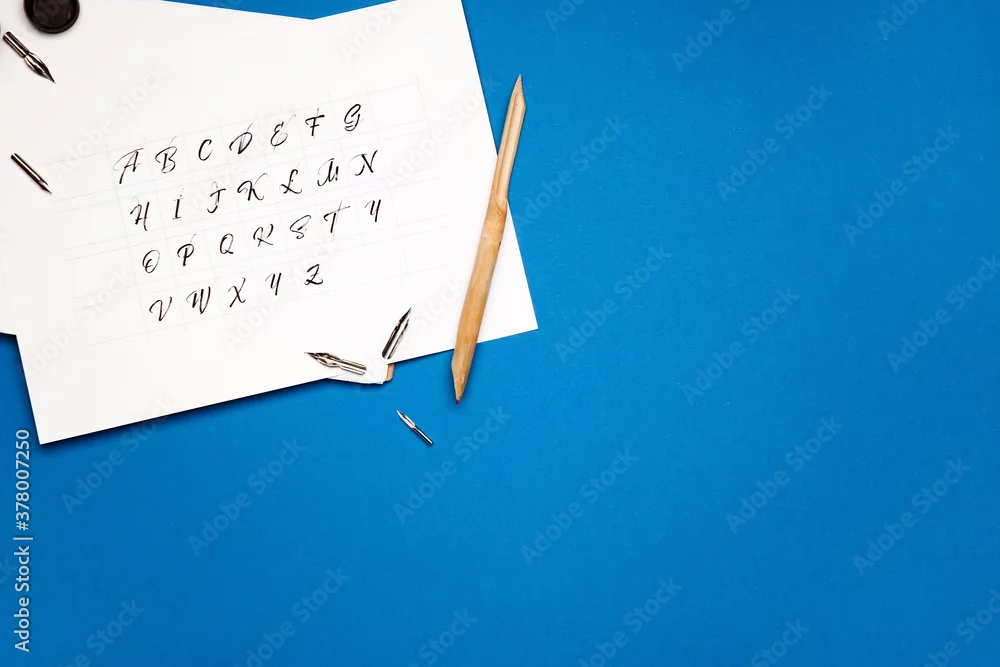 A B C D E F G
H I J K L M N
O P Q K S T Y
V W X Y Z
Adobe Stock | #378007250